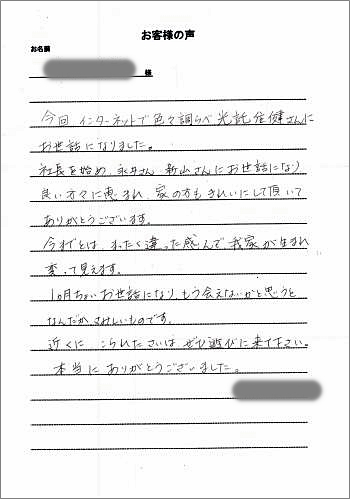 お客様の声
お名前
様
今回 インターネットで色々調らべ 光託住健さんに
お世話になりました。
社長を始め、永井さん 新山さんにお世話になり
良い方々に恵まれ、家の方もきれいにして頂いて
ありがとうございます。
今までとは、まったく違った感んで我家が生まれ
変って見えます。
1ヶ月ちょいお世話になり、もう会えないかと思うと
なんだかさみしいものです。
近くに こられたさいは、ぜひ遊びに来て下さい。
本当に ありがとうございました。